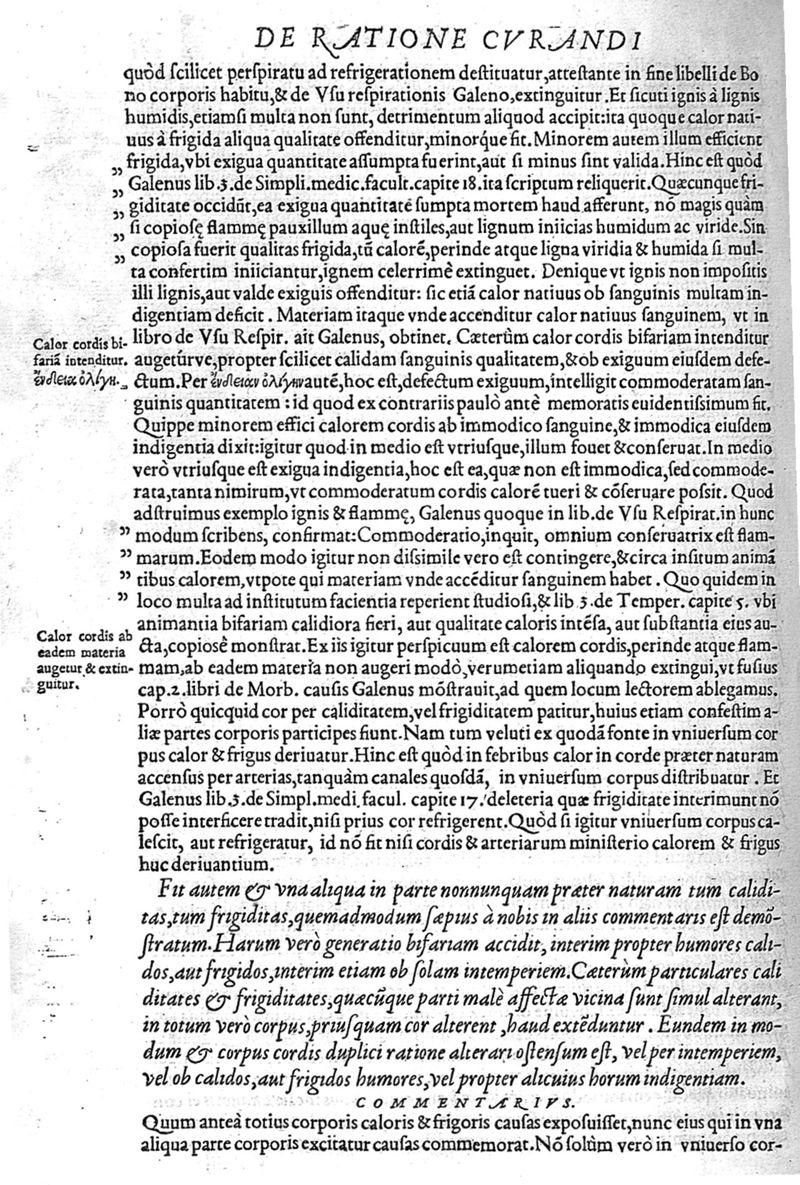 DE RATIONE CVRANDI
quòd ſcilicet perſpiratu ad refrigerationem deſtituatur,atteſtante in fine libelli de Bo
no corporis habitu,& de Vſu reſpirationis Galeno,extinguitur.Et ſicuti ignis à lignis
humidis,etiamſi multa non ſunt, detrimentum aliquod accipit:ita quoque calor nati-
uus à frigida aliqua qualitate offenditur,minorq́ue fit.Minorem autem illum efficient
„ frigida,vbi exigua quantitate aſſumpta fuerint,aut ſi minus ſint valida.Hinc eſt quòd
„ Galenus lib.3.de Simpli.medic.facult.capite 18.ita ſcriptum reliquerit.Quæcunque fri-
„ giditate occidũt,ea exigua quantitate ſumpta mortem haud afferunt, nõ magis quàm
„ ſi copioſę flammę pauxillum aquę inſtiles,aut lignum iniicias humidum ac viride.Sin
„ copioſa fuerit qualitas frigida,tũ calorẽ,perinde atque ligna viridia & humida ſi mul-
ta confertim iniiciantur,ignem celerrimè extinguet. Denique vt ignis non impoſitis
illi lignis,aut valde exiguis offenditur: ſic etiã calor natiuus ob ſanguinis multam in-
digentiam deficit . Materiam itaque vnde accenditur calor natiuus ſanguinem, vt in
libro de Vſu Reſpir. ait Galenus, obtinet. Cæterùm calor cordis bifariam intenditur
Calor cordis bi-
fariã intenditur.
ἔνδεια ὀλίγη.
augetúrve,propter ſcilicet calidam ſanguinis qualitatem,& ob exiguum eiuſdem defe-
ctum.Per ἔνδειαν ὀλίγην autẽ,hoc eſt,defectum exiguum,intelligit commoderatam ſan-
guinis quantitatem : id quod ex contrariis paulò antè memoratis euidentiſſimum fit.
Quippe minorem effici calorem cordis ab immodico ſanguine,& immodica eiuſdem
indigentia dixit:igitur quod in medio eſt vtriuſque,illum fouet & conſeruat.In medio
verò vtriuſque eſt exigua indigentia,hoc eſt ea,quæ non eſt immodica,ſed commode-
rata,tanta nimirum,vt commoderatum cordis calorẽ tueri & cõſeruare poſſit. Quod
adſtruimus exemplo ignis & flammę, Galenus quoque in lib.de Vſu Reſpirat.in hunc
„ modum ſcribens, confirmat:Commoderatio,inquit, omnium conſeruatrix eſt flam-
„ marum.Eodem modo igitur non diſſimile vero eſt contingere,& circa inſitum animã
„ tibus calorem,vtpote qui materiam vnde accẽditur ſanguinem habet . Quo quidem in
„ loco multa ad inſtitutum facientia reperient ſtudioſi,& lib 3.de Temper. capite 5. vbi
animantia bifariam calidiora fieri, aut qualitate caloris intẽſa, aut ſubſtantia eius au-
Calor cordis ab
eadem materia
augetur & extin-
guitur.
cta,copioſè monſtrat.Ex iis igitur perſpicuum eſt calorem cordis,perinde atque flam-
mam,ab eadem materia non augeri modò,verumetiam aliquando extingui,vt fuſius
cap.2.libri de Morb. cauſis Galenus mõſtrauit,ad quem locum lectorem ablegamus.
Porrò quicquid cor per caliditatem,vel frigiditatem patitur,huius etiam confeſtim a-
liæ partes corporis participes fiunt.Nam tum veluti ex quodã fonte in vniuerſum cor
pus calor & frigus deriuatur.Hinc eſt quòd in febribus calor in corde præter naturam
accenſus per arterias,tanquàm canales quoſdã, in vniuerſum corpus diſtribuatur . Et
Galenus lib.3.de Simpl.medi.facul. capite 17. deleteria quæ frigiditate interimunt nõ
poſſe interficere tradit,niſi prius cor refrigerent.Quòd ſi igitur vniuerſum corpus ca-
leſcit, aut refrigeratur, id nõ fit niſi cordis & arteriarum miniſterio calorem & frigus
huc deriuantium.
Fit autem & vna aliqua in parte nonnunquam præter naturam tum calidi-
tas,tum frigiditas,quemadmodum ſæpius à nobis in aliis commentariis eſt demõ-
ſtratum.Harum verò generatio bifariam accidit, interim propter humores cali-
dos,aut frigidos,interim etiam ob ſolam intemperiem.Cæterùm particulares cali
ditates & frigiditates,quæcũque parti malè affectæ vicina ſunt ſimul alterant,
in totum verò corpus,priuſquam cor alterent ,haud extẽduntur . Eundem in mo-
dum & corpus cordis duplici ratione alterari oſtenſum eſt, vel per intemperiem,
vel ob calidos,aut frigidos humores,vel propter alicuius horum indigentiam.
COMMENTARIVS.
Quum anteà totius corporis caloris & frigoris cauſas expoſuiſſet,nunc eius qui in vna
aliqua parte corporis excitatur cauſas commemorat.Nõ ſolùm verò in vniuerſo cor-